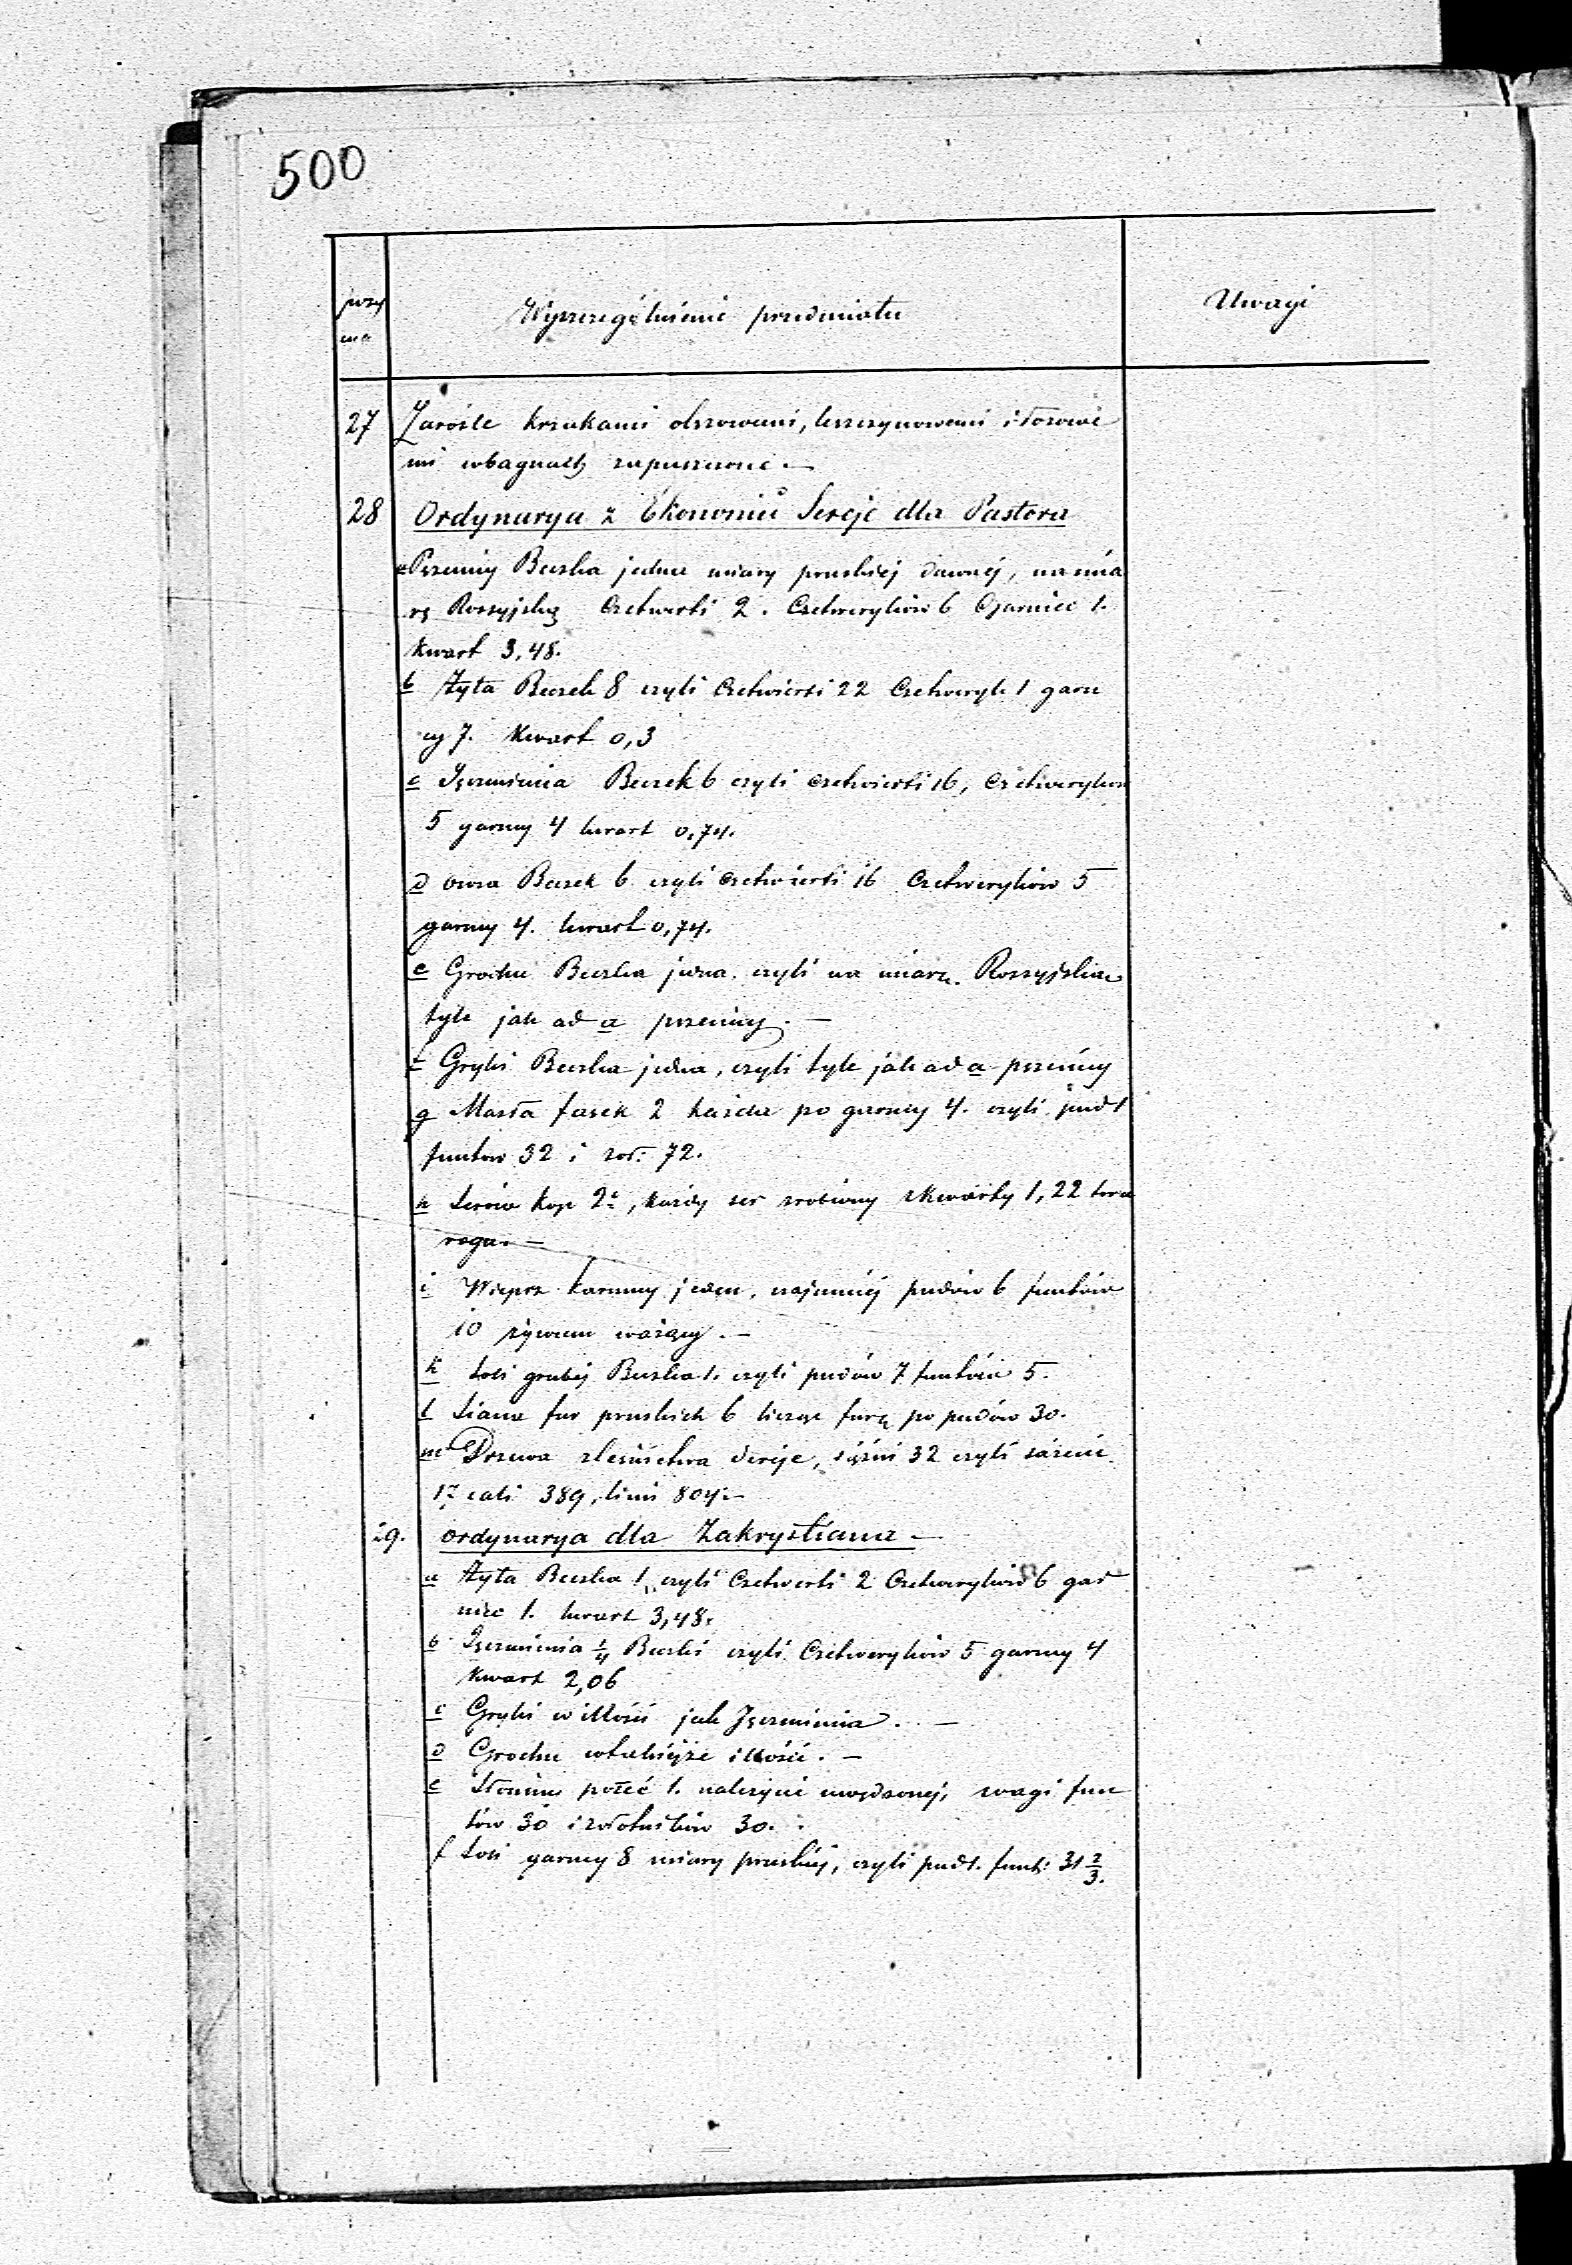 500
pozy Wyszczególnienie przedmiotu Uwagi
cya
27 Zarośle krzakami olszowemi, leszczynowemi i łozowe
mi w bagnach zapuszczone. —
28 Ordynarya z Ekonomii Sereje dla Pastora
a Pszenicy Beczka jedna miary pruskiej dawnéj, na mia
rę Rossyjską Czetwerti 2. Czetweryków 6 Garniec 1.
kwart 3,48.
b Żyta Beczek 8 czyli Czetwierti 22 Czetweryk 1 garn
cy 7. kwart 0,3
c Jęczmienia Beczek 6 czyli czetwierti 16, Czetweryków
5 garncy 4 kwart 0,74.
d owsa Beczek 6 czyli czetwierti 16 Czetweryków 5
garncy 4. kwart 0,74.
e Grochu Beczka jedna czyli na miarę Rossyjską
tyle jak ad a pszenicy. —
f Gryki Beczka jedna, czyli tyle jak ad a pszenicy
g Masła fasek 2 każda po garncy 4. czyli pud 1
funtów 32 i zoł: 72.
h Serów kop 2e, każdy ser zrobiony z kwarty 1,22 twa
rogu. —
i Wieprz karmny jeden, najmniéj pudów 6 funtów
10 żywcem ważący. —
k Soli grubéj Beczka 1. czyli pudów 7 funtów 5.
l Siana fur pruskich 6 licząc furę po pudów 30.
m Drzewa z leśnictwa Sereje, sążni 32 czyli sażeni
17 cali 389, linii 804. —
29. ordynarya dla Zakrystiana —
a Żyta Beczka 1, czyli Czetwerti 2 Czetweryków 6 gar
niec 1. kwart 3,48.
b Jęczmienia 1/4 Beczki czyli Czetweryków 5 garncy 4
kwart 2,06
c Gryki w illości jak Jęczmienia. —
d Grochu w takiejże illości. —
e Słoniny połeć 1. należycie uwędzonéj, wagi fun
tów 30 i zołotników 30.
f Soli garncy 8 miary pruskiéj, czyli pud 1. funt: 31 2/3.